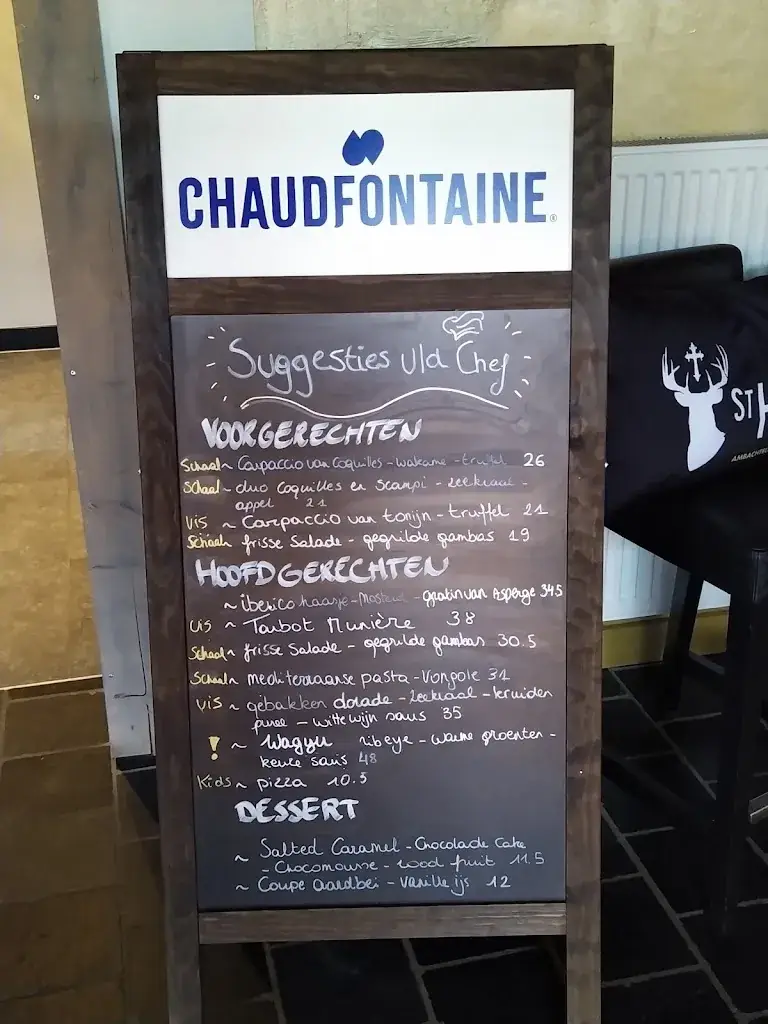 CHAUDFONTAINE®
Suggesties v/d Chef
VOORGERECHTEN
Schaal ~ Carpaccio van Coquilles - wakame - truffel 26
Schaal ~ duo Coquilles en Scampi - zeekraal -
appel 21
Vis ~ Carpaccio van tonijn - truffel 21
Schaal ~ frisse Salade - gegrilde gambas 19
HOOFDGERECHTEN
~ iberico haasje - Mosterd - gratin van Asperge 34.5
Vis ~ Tarbot Munière 38
Schaal ~ frisse Salade - gegrilde gambas 30.5
Schaal ~ mediterraanse pasta - Vongole 31
Vis ~ gebakken dorade - zeekraal - kruiden
puree - witte wijn saus 35
! ~ Wagyu ribeye - warme groenten -
keuze saus 48
Kids ~ pizza 10.5
DESSERT
~ Salted Caramel - Chocolade Cake
- Chocomousse - rood fruit 11.5
~ Coupe aardbei - vanille ijs 12
ST H
AMBACHTEL